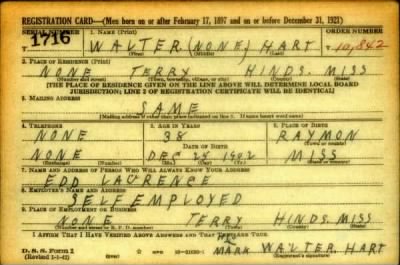 REGISTRATION CARD—(Men born on or after February 17, 1897 and on or before December 31, 1921)
SERIAL NUMBER 1. NAME (Print) ORDER NUMBER
1716 WALTER (NONE) HART 10,842
(First) (Middle) (Last)
2. PLACE OF RESIDENCE (Print)
NONE TERRY HINDS MISS
(Number and street) (Town, township, village, or city) (County) (State)
[THE PLACE OF RESIDENCE GIVEN ON THE LINE ABOVE WILL DETERMINE LOCAL BOARD
JURISDICTION; LINE 2 OF REGISTRATION CERTIFICATE WILL BE IDENTICAL]
3. MAILING ADDRESS
SAME
[Mailing address if other than place indicated on line 2. If same insert word same]
4. TELEPHONE 5. AGE IN YEARS 6. PLACE OF BIRTH
NONE 38 RAYMON
DATE OF BIRTH (Town or county)
NONE DEC 25 1902 MISS
(Exchange) (Number) (Mo.) (Day) (Yr.) (State or country)
7. NAME AND ADDRESS OF PERSON WHO WILL ALWAYS KNOW YOUR ADDRESS
EDD LAURENCE
8. EMPLOYER'S NAME AND ADDRESS
SELF EMPLOYED
9. PLACE OF EMPLOYMENT OR BUSINESS
NONE TERRY HINDS. MISS
(Number and street or R. F. D. number) (Town) (County) (State)
I AFFIRM THAT I HAVE VERIFIED ABOVE ANSWERS AND THAT THEY ARE TRUE.
D. S. S. Form 1
(Revised 1-1-42) (over) MARK WALTER HART